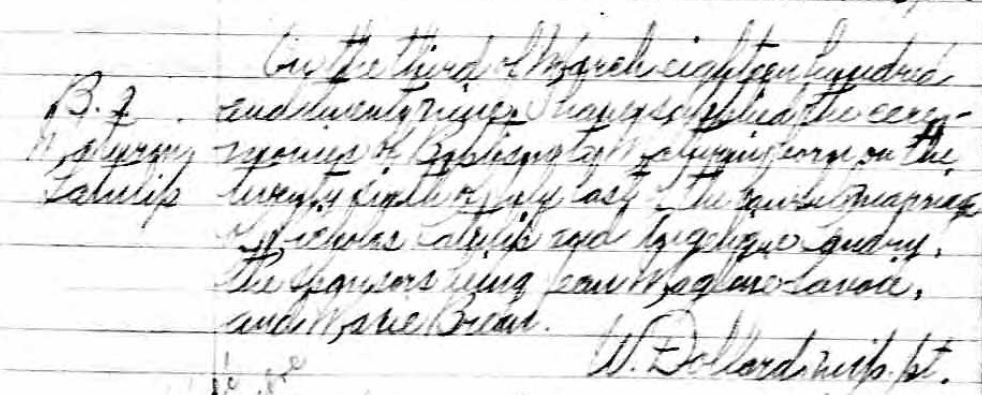 On the third of March eighteen hundred
B. 7. and twenty nine I have supplied the cere-
Maturin monies of Baptism to Maturin born on the
Latulip twenty sixth of July last of the lawful marriage
of Nicholas Latulip and Angelique Guidry,
the sponsors being Jean Lavoie,
and Marie Breau.
W. Dollard, miss. pt.